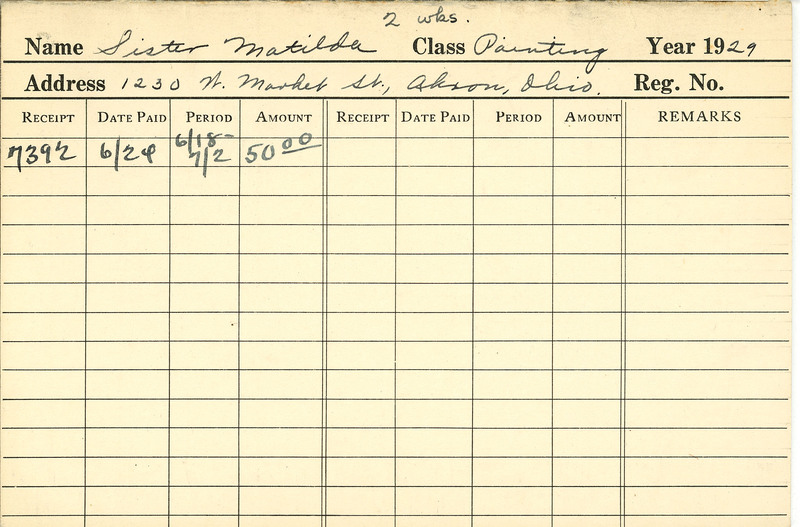 2 wks.
Name Sister Matilda Class Painting Year 1929
Address 1230 W. Market St., Akron, Ohio. Reg. No.
RECEIPT DATE PAID PERIOD AMOUNT RECEIPT DATE PAID PERIOD AMOUNT REMARKS
7392 6/24 6/18-7/2 50 00